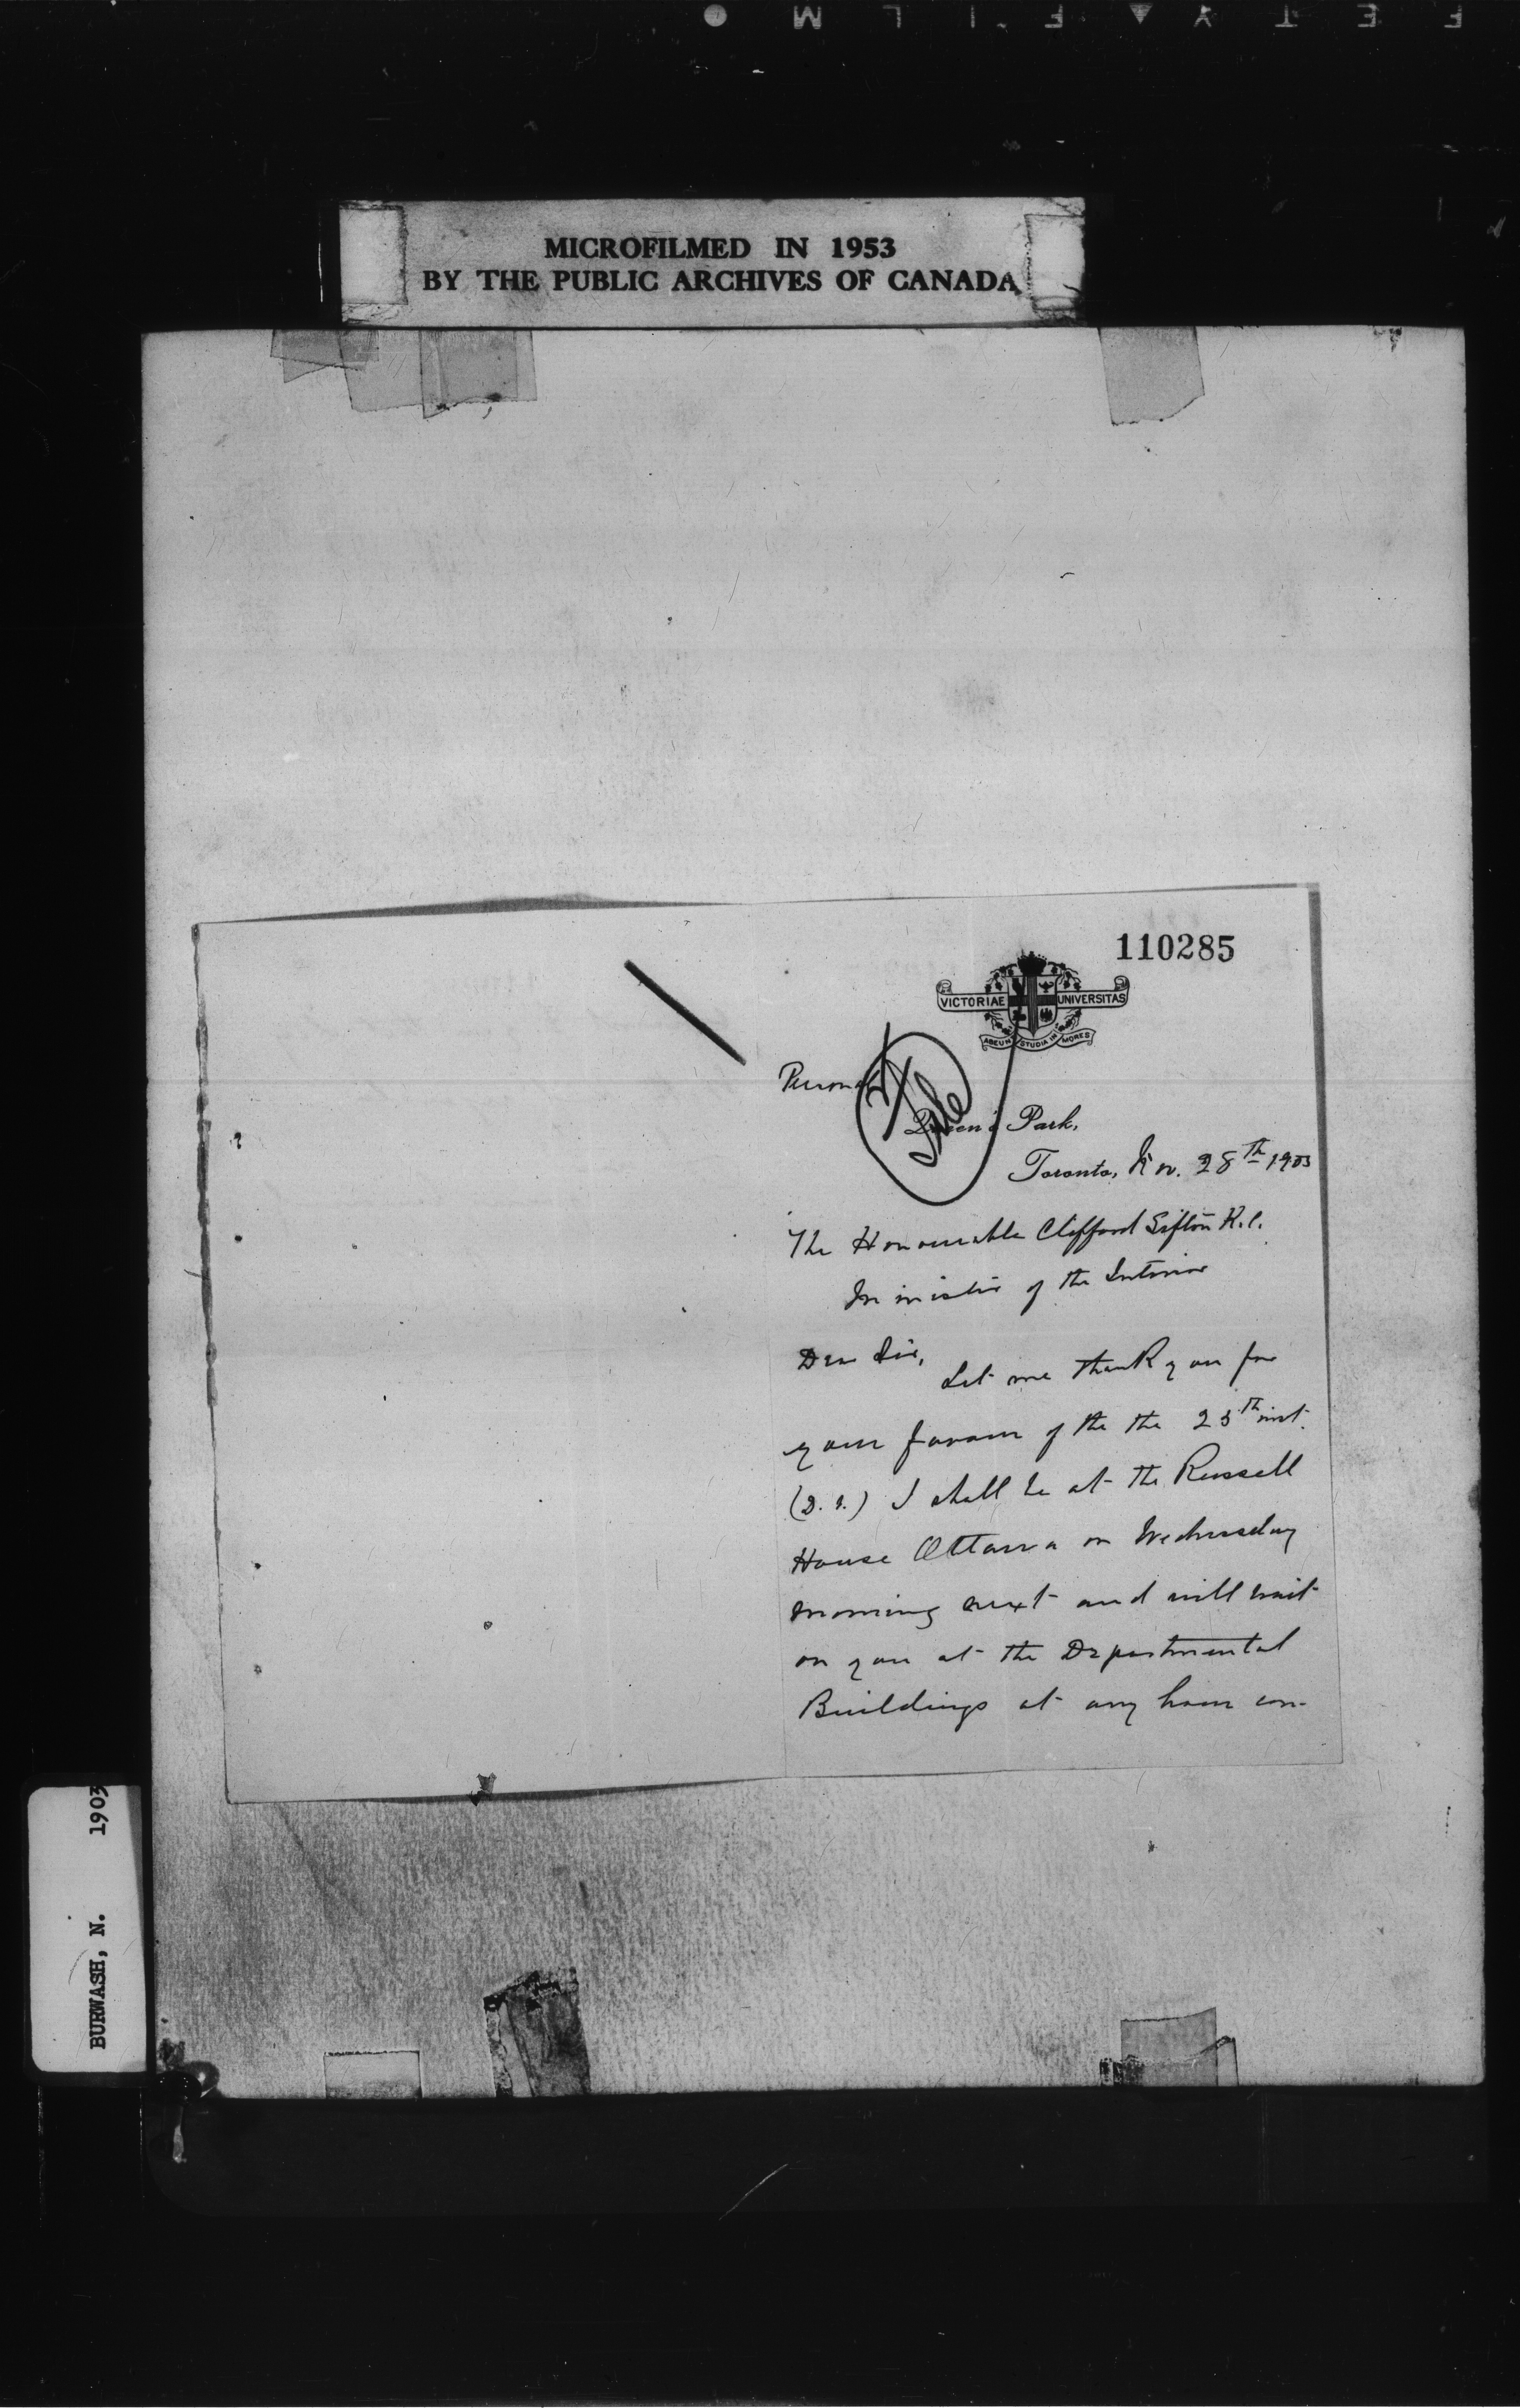 SAFETY▲FILM ●
MICROFILMED IN 1953
BY THE PUBLIC ARCHIVES OF CANADA
110285
VICTORIAE UNIVERSITAS
ABEUNT STUDIA IN MORES
Personal
File
Queen's Park,
Toronto, Nov. 28th 1903
The Honourable Clifford Sifton K.C.
Minister of the Interior
Dear Sir,
Let me thank you for
your favour of the the 25th inst.
(D.V.) I shall be at the Russell
House Ottawa on Wednesday
morning next and will wait
on you at the Departmental
Buildings at any hour con-
BURWASH, N. 1903